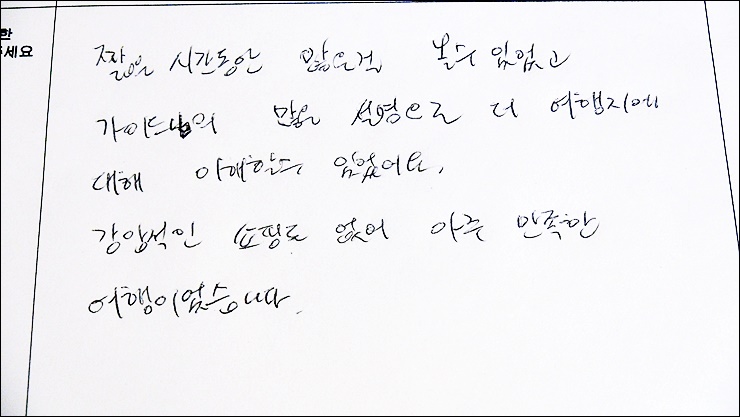 한
주세요
짧은 시간동안 많은걸 볼수 있었고
가이드님의 많은 설명으로 더 여행지에
대해 이해할수 있었어요.
강압적인 쇼핑도 없어 아주 만족한
여행이었습니다.